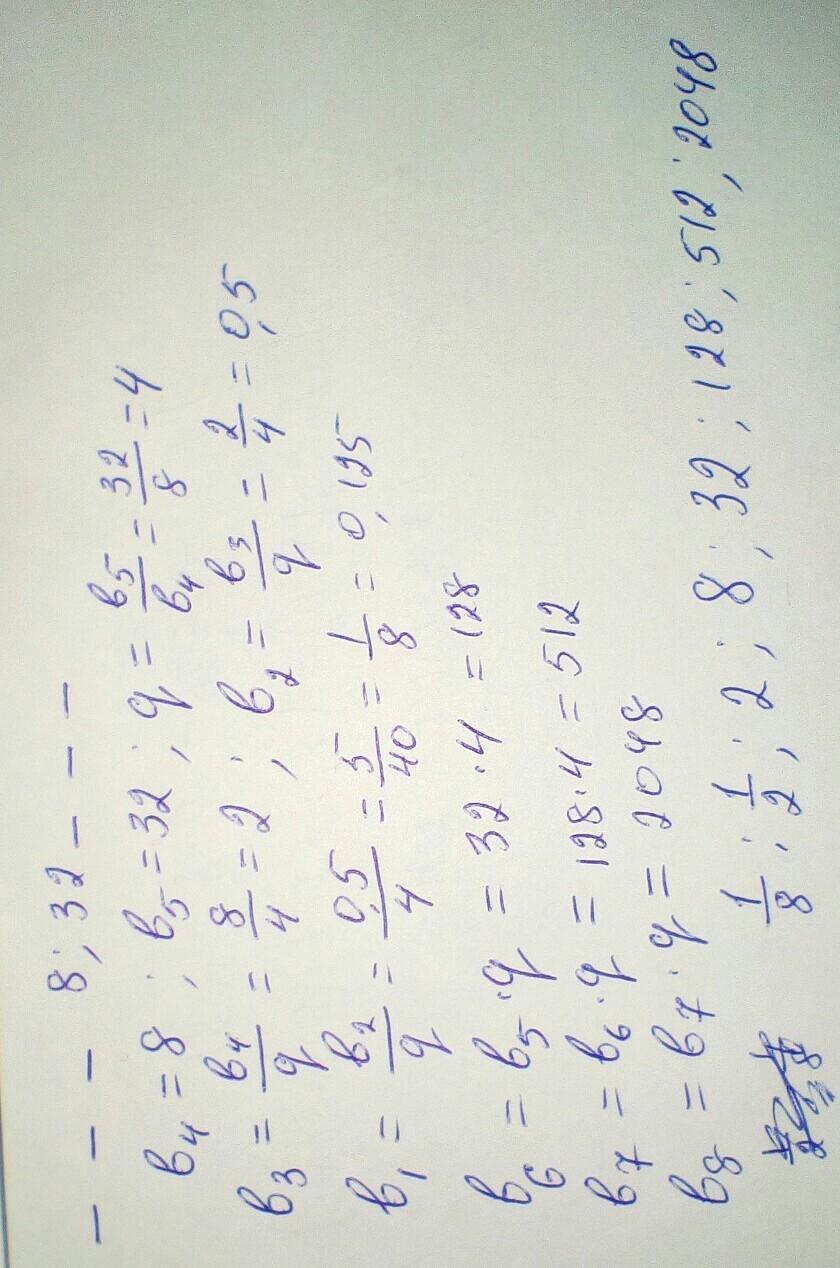 _ _ _ 8; 32 _ _ _
b₄ = 8 ; b₅ = 32 ; q = b₅/b₄ = 32/8 = 4
b₃ = b₄/q = 8/4 = 2 ; b₂ = b₃/q = 2/4 = 0,5
b₁ = b₂/q = 0,5/4 = 5/40 = 1/8 = 0,125
b₆ = b₅ · q = 32 · 4 = 128
b₇ = b₆ · q = 128 · 4 = 512
b₈ = b₇ · q = 2048
1/8 ; 1/2 ; 2 ; 8 ; 32 ; 128 ; 512 ; 2048